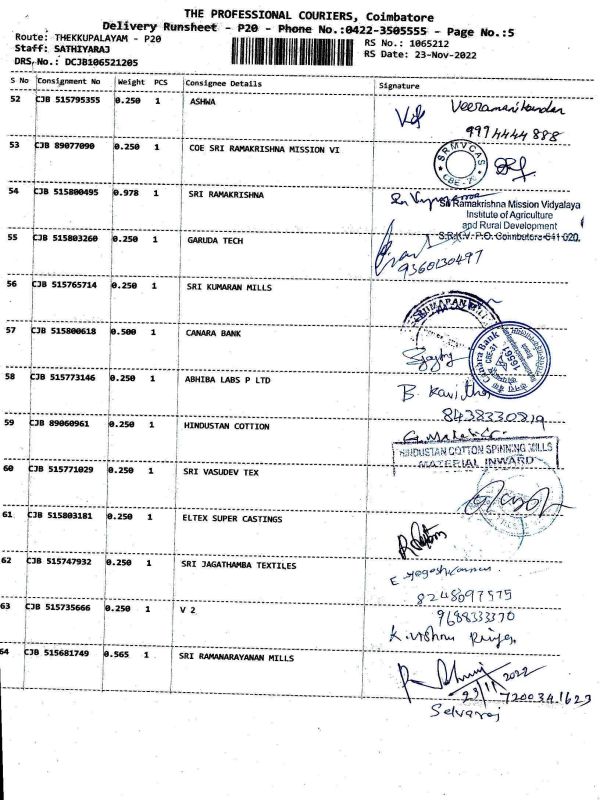 THE PROFESSIONAL COURIERS, Coimbatore
Delivery Runsheet - P20 - Phone No.:0422-3505555 - Page No.:5
Route: THEKKUPALAYAM - P20
RS No.: 1065212
Staff: SATHIYARAJ
RS Date: 23-Nov-2022
DRS.No.: DCJB106521205
S No Consignment No Weight PCS Consignee Details Signature
52 CJB 515795355 0.250 1 ASHWA
9974444888
53 CJB 89077090 0.250 1 COE SRI RAMAKRISHNA MISSION VI
SRMVCAS
CBE-20
54 CJB 515800495 0.978 1 SRI RAMAKRISHNA
Sri Ramakrishna Mission Vidyalaya
Institute of Agriculture
and Rural Development
S.R.K.V. P.O. Coimbatore-641 020.
55 CJB 515803260 0.250 1 GARUDA TECH
9360130497
56 CJB 515765714 0.250 1 SRI KUMARAN MILLS
57 CJB 515800618 0.500 1 CANARA BANK
Canara Bank
16561
58 CJB 515773146 0.250 1 ABHIBA LABS P LTD
B. Kavitha
8438330819
59 CJB 89060961 0.250 1 HINDUSTAN COTTION
HINDUSTAN COTTON SPINNING MILLS
MATERIAL INWARD
60 CJB 515771029 0.250 1 SRI VASUDEV TEX
61 CJB 515803181 0.250 1 ELTEX SUPER CASTINGS
62 CJB 515747932 0.250 1 SRI JAGATHAMBA TEXTILES
8248697575
63 CJB 515735666 0.250 1 V 2
9688333370
64 CJB 515681749 0.565 1 SRI RAMANARAYANAN MILLS
23/11/2022
7200341623
Selvaraj